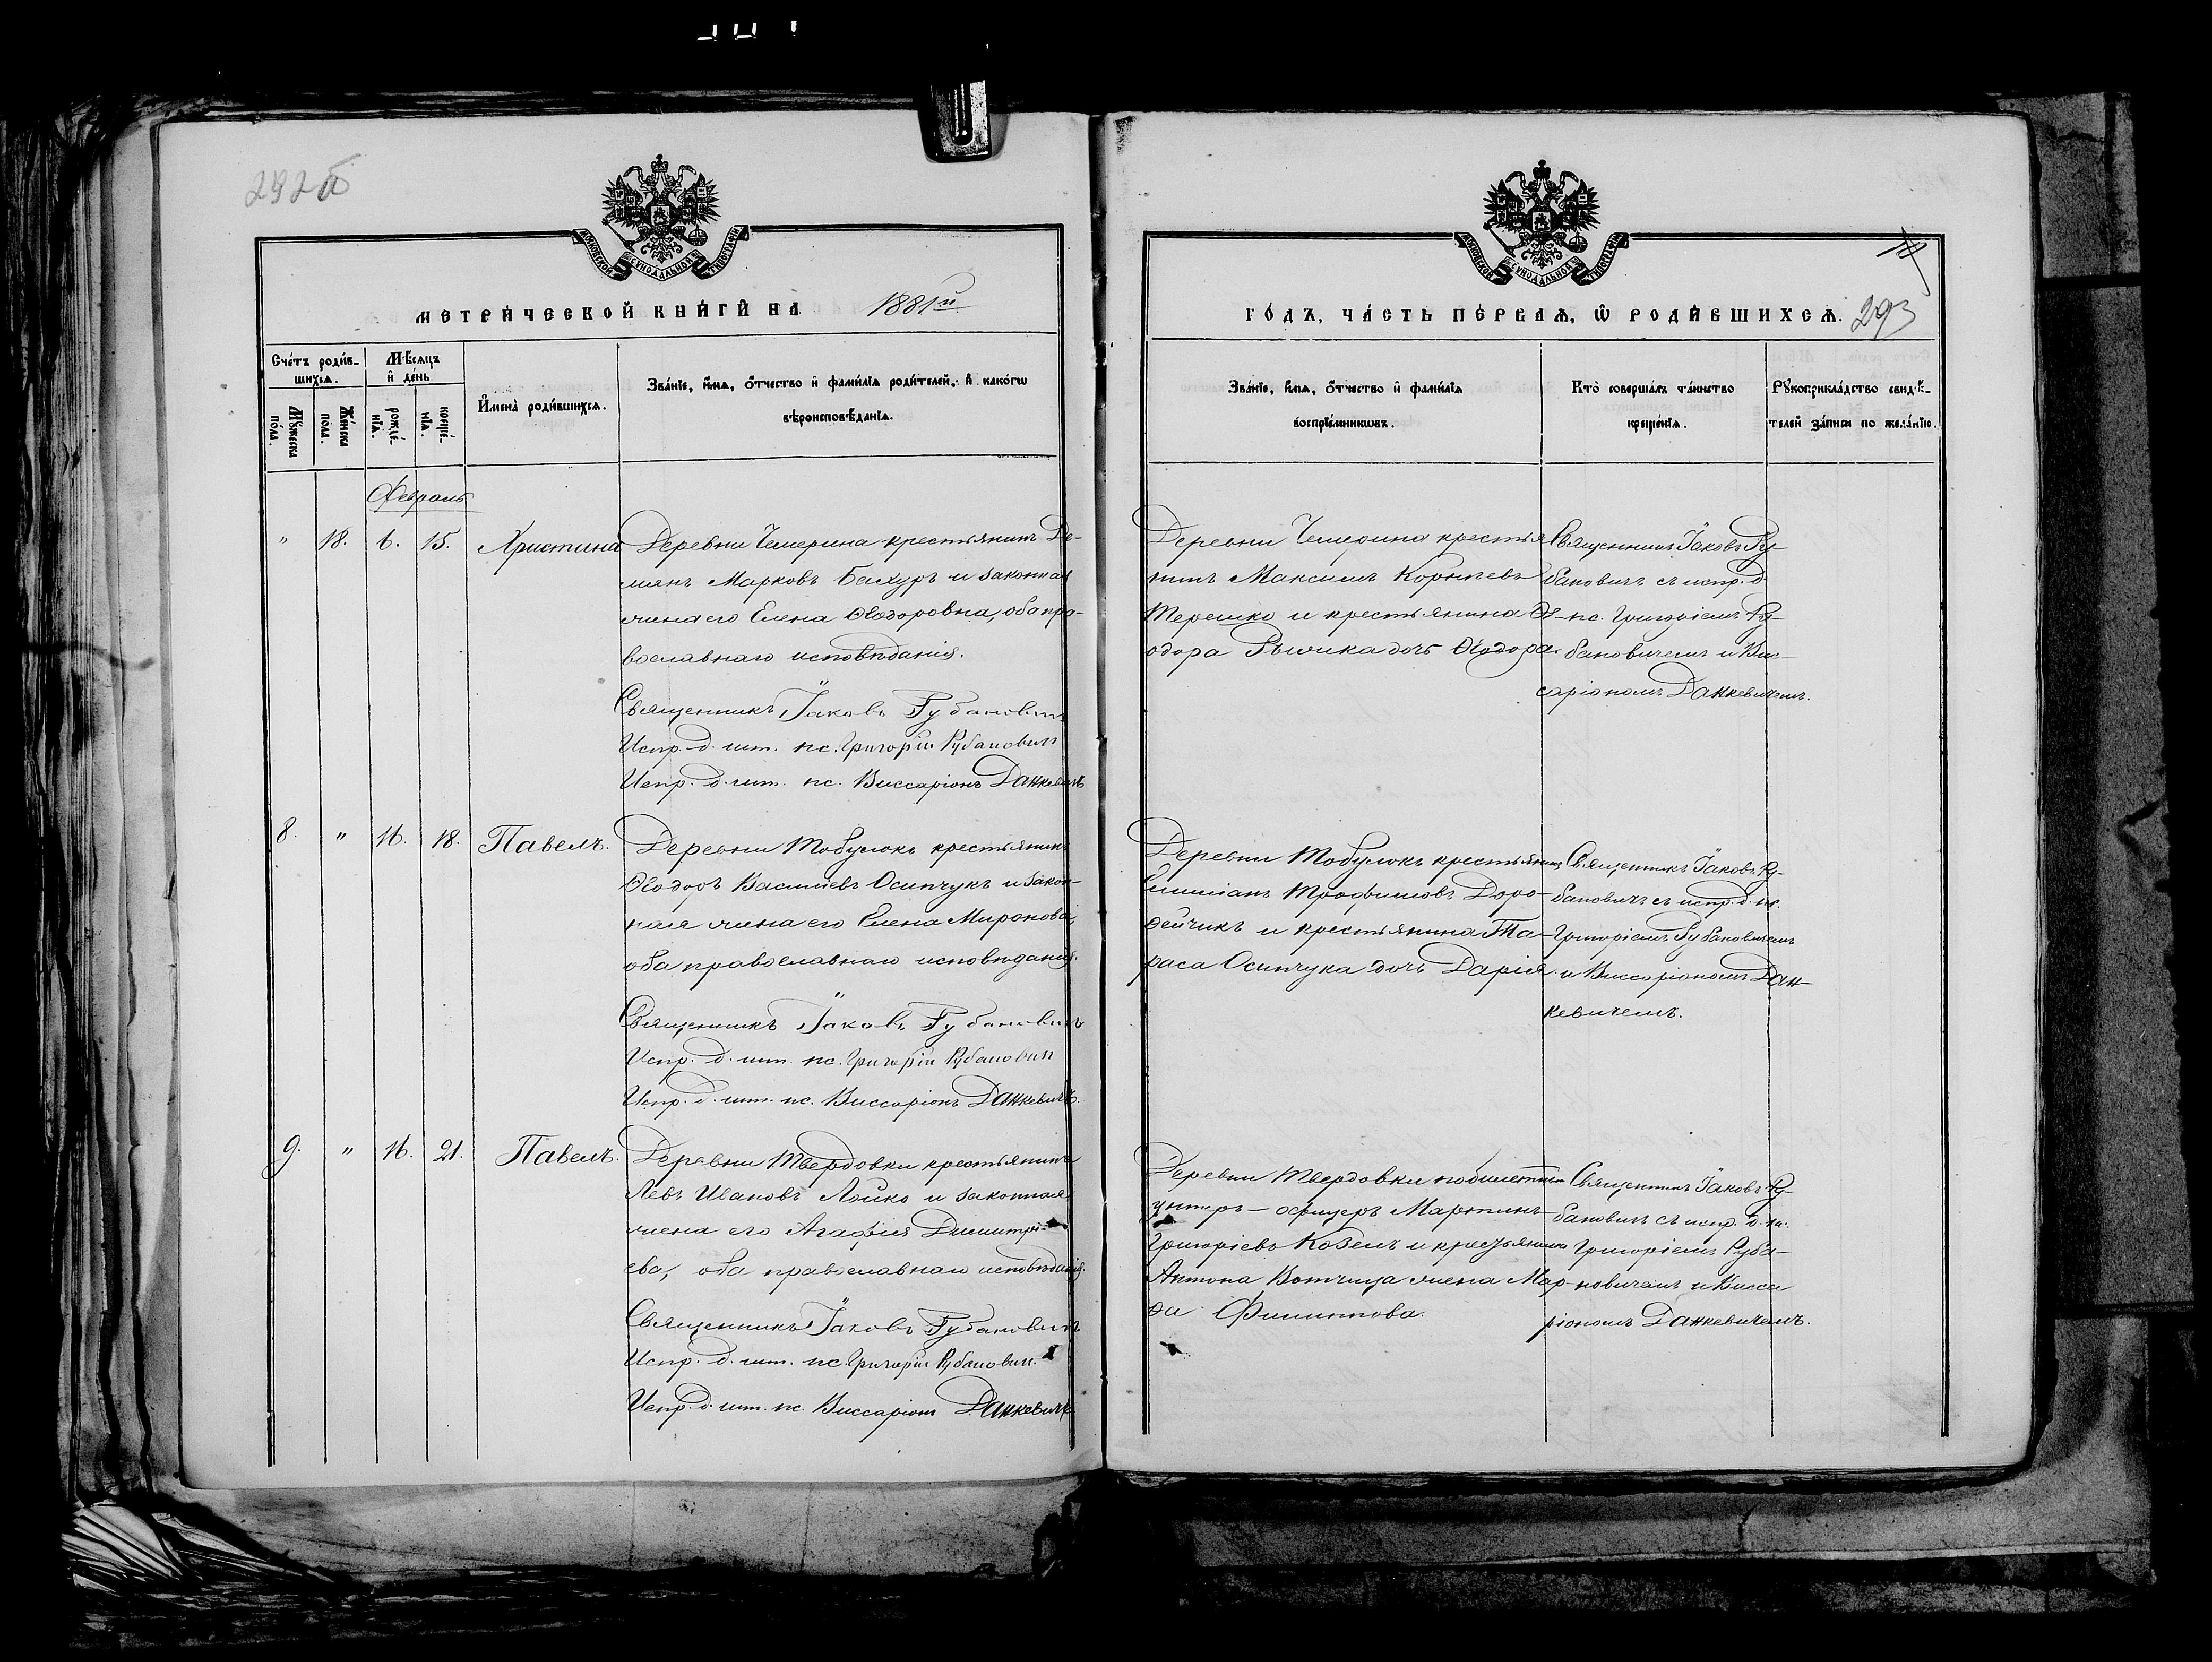 292б
МОСКОВСКОЙ СѴНОДАЛЬНОЙ ТИПОГРАФІИ
МЕТРИЧЕСКОЙ КНИГИ НА 1881й
Счетъ родив-
шихся.
Мѣсяцъ
и день
Мужеска
пола.
Женска
пола.
рожде-
нія.
креще-
нія.
Имена родившихся.
Званіе, имя, отчество и фамилія родителей, и какогѡ
вѣроисповѣданія.
Февраль
" 18. 6. 15. Христина
Деревни Чемерина крестьянинъ Де-
мянъ Марковъ Бахуръ и законная
жена его Елена Ѳеодоровна, оба пра-
вославнаго исповѣданія.
Священникъ Іаковъ Рубановичъ
Испр. д. шт. пс. Григорій Рубанович
Испр. д. шт. пс. Виссаріонъ Данкевичъ
8. " 16. 18. Павелъ.
Деревни Тобулокъ крестьянинъ
Ѳеодоръ Васильевъ Осипчукъ и закон-
ная жена его Елена Миронова,
оба православнаго исповѣданія.
Священникъ Іаковъ Рубановичъ
Испр. д. шт. пс. Григорій Рубанович
Испр. д. шт. пс. Виссаріонъ Данкевичъ.
9. " 16. 21. Павелъ.
Деревни Твердовки крестьянинъ
Левъ Ивановъ Лойко и законная
жена его Агафія Димитрі-
ева, оба православнаго исповѣданія.
Священникъ Іаковъ Рубановичъ
Испр. д. шт. пс. Григорій Рубанович.
Испр. д. шт. пс. Виссаріонъ Данкевичъ
МОСКОВСКОЙ СѴНОДАЛЬНОЙ ТИПОГРАФІИ
ГОДЪ, ЧАСТЬ ПЕРВАЯ, Ѡ РОДИВШИХСЯ. 293
Званіе, имя, отчество и фамилія
воспріемникѡвъ.
Кто совершалъ таинство
крещенія.
Рукоприкладство свидѣ-
телей записи по желанію.
Деревни Чемерина крестья
нинъ Максимъ Корнѣевъ
Терешко и крестьянина Ѳе-
одора дочь Ѳеодора.
Священникъ Іаковъ Ру-
бановичъ съ испр. д.
пс. Григоріемъ Ру-
бановичемъ и Вис-
саріономъ Данкевичемъ.
Деревни Тобулокъ крестьянинъ
Емиліанъ Трофимовъ Доро-
ѳейчикъ и крестьянина Та-
раса Осипчука дочь Дарія.
Священникъ Іаковъ Ру-
бановичъ съ испр. д. пс.
Григоріемъ Рубановичемъ
и Виссаріономъ Дан-
кевичемъ.
Деревни Твердовки
унтеръ-офицеръ Мартинъ
Григорьевъ Козелъ и крестьянина
Антона жена Мар-
ѳа Филиппова.
Священникъ Іаковъ Ру-
бановичъ съ испр. д. пс.
Григоріемъ Руба-
новичемъ и Висса
ріономъ Данкевичемъ.